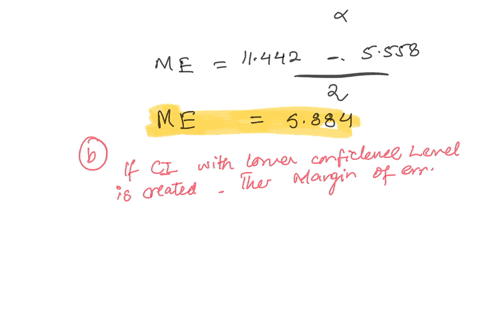 α
ME = 11.442 - 5.558
2
ME = 5.884
(b) If CI with lower confidence Level
is created - The Margin of err.